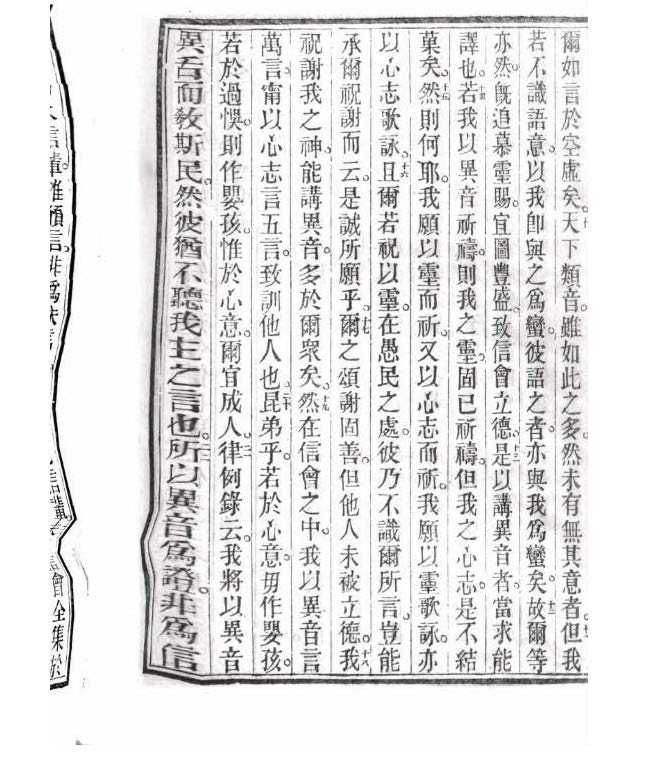 爾如言於空虛矣。十天下類音。雖如此之多。然未有無其意者。十一但我
若不識語意。以我卽與之爲蠻。彼語之者。亦與我爲蠻矣。十二故爾等
亦然。旣追慕靈賜。宜圖豐盛。致信會立德。十三是以講異音者。當求能
譯也。十四若我以異音祈禱。則我之靈固已祈禱。但我之心志是不結
菓矣。十五然則何耶。我願以靈而祈。又以心志而祈。我願以靈歌詠。亦
以心志歌詠。十六且爾若祝以靈。在愚民之處。彼乃不識爾所言。豈能
承爾祝謝而云。是誠所願乎。十七爾之頌謝固善。但他人未被立德。十八我
祝謝我之神。能講異音。多於爾衆矣。十九然在信會之中。我以異音言
萬言。甯以心志言五言。致訓他人也。二十昆弟乎。若於心意毋作嬰孩。
若於過悞。則作嬰孩。惟於心意。爾宜成人。二一律例錄云。我將以異音
異舌而敎斯民。然彼猶不聽我主之言也。二二所以異音爲證。非爲信
信輩。雖預言。非爲
信輩
會全集於